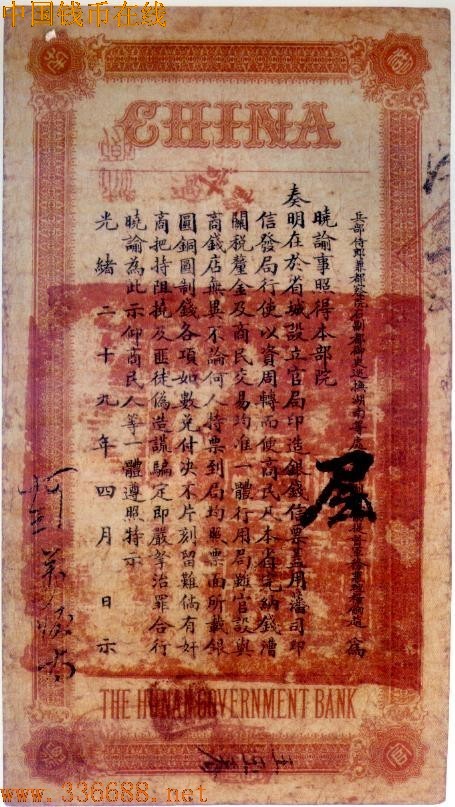 中国钱币在线
CHINA
兵部侍郎兼都察院右副都御史巡撫湖南等處 為
曉諭事照得本部院
奏明在於省城設立官局印造銀錢信票蓋用藩司印
信發局行使以資周轉而便商民凡本省完納錢漕
關稅釐金及商民交易均准一體行用局雖官設與
商錢店無異不論何人持票到局均照票面所載銀
圓銅圓制錢各項如數兌付決不片刻留難倘有奸
商把持阻撓及匪徒偽造謊騙定即嚴拏治罪合行
曉諭為此示仰商民人等一體遵照特示
光緒二十九年四月 日示
THE HUNAN GOVERNMENT BANK
www.336688.net